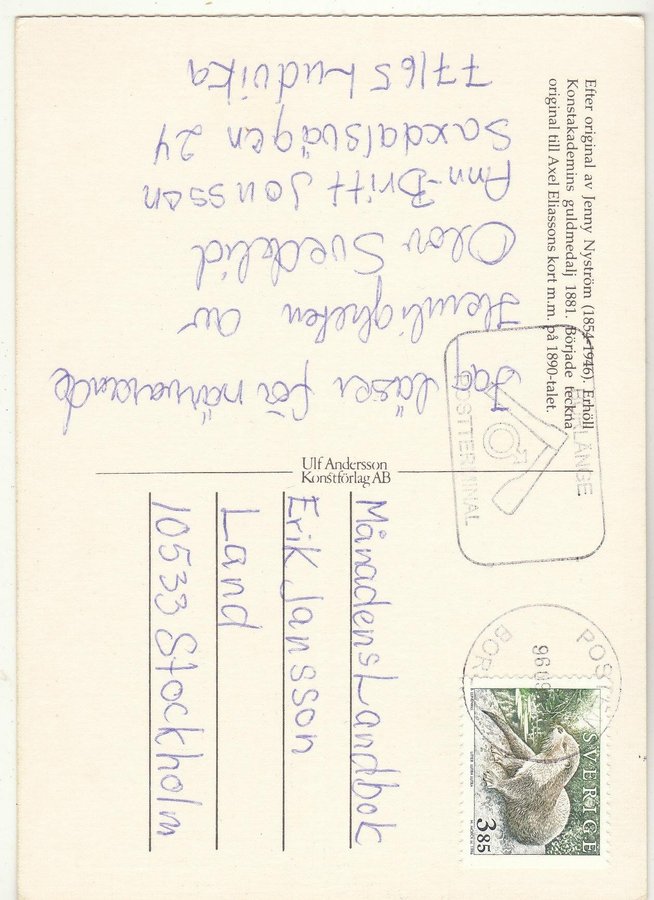 Efter original av Jenny Nyström (1854-1946). Erhöll
Konstakademins guldmedalj 1881. Började teckna
original till Axel Eliassons kort m.m. på 1890-talet.
Jag läser för närvarande
Hemligheten av
Olov Svedelid
Ann-Britt Jonsson
Saxdalsvägen 24
77165 Ludvika
Ulf Andersson
Konstförlag AB
BORLÄNGE
POSTTERMINAL
POSTEN
BORL
96 09
SVERIGE
3.85
Månadens Landbok
Erik Jansson
Land
10533 Stockholm